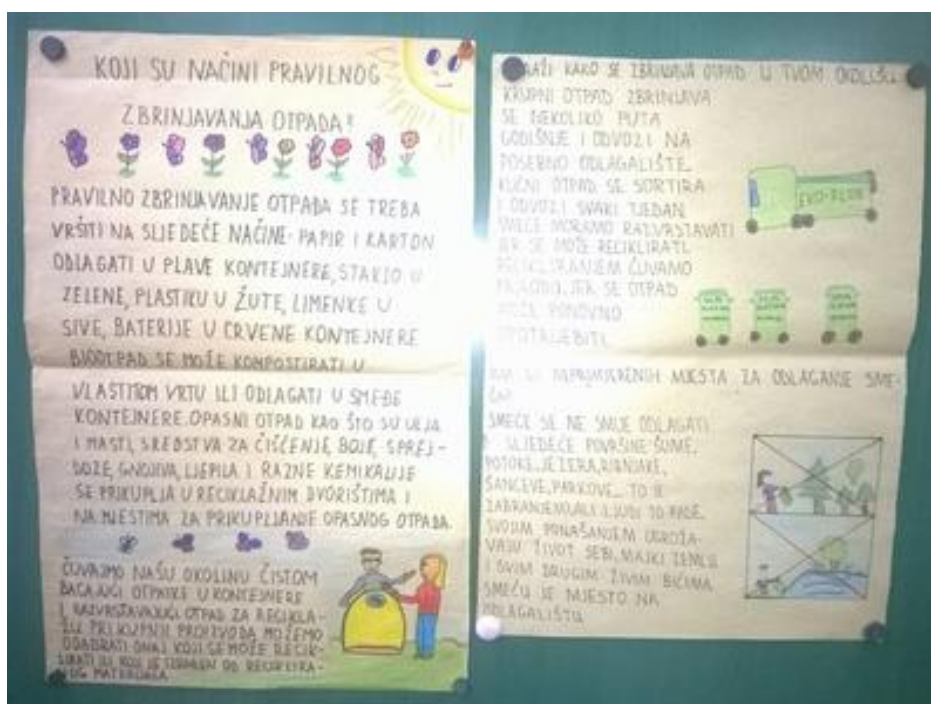 KOJI SU NAČINI PRAVILNOG
ZBRINJAVANJA OTPADA?
PRAVILNO ZBRINJAVANJE OTPADA SE TREBA
VRŠITI NA SLJEDEĆE NAČINE: PAPIR I KARTON
ODLAGATI U PLAVE KONTEJNERE, STAKLO U
ZELENE, PLASTIKU U ŽUTE, LIMENKE U
SIVE, BATERIJE U CRVENE KONTEJNERE
BIOOTPAD SE MOŽE KOMPOSTIRATI U
VLASTITOM VRTU ILI ODLAGATI U SMEĐE
KONTEJNERE. OPASNI OTPAD KAO ŠTO SU ULJA
I MASTI, SREDSTVA ZA ČIŠĆENJE, BOJE, SPREJ-
DOZE, GNOJIVA, LJEPILA I RAZNE KEMIKALIJE
SE PRIKUPLJA U RECIKLAŽNIM DVORIŠTIMA I
NA MJESTIMA ZA PRIKUPLJANJE OPASNOG OTPADA.
ČUVAJMO NAŠU OKOLINU ČISTOM
BACAJUĆI OTPATKE U KONTEJNERE
I RAZVRSTAVAJUĆI OTPAD ZA RECIKLA-
ŽU. PRI KUPNJI PROIZVODA MOŽEMO
ODABRATI ONAJ KOJI SE MOŽE RECIK-
LIRATI ILI KOJI JE OD RECIKLIRA-
NOG MATERIJALA.
KAKO SE ZBRINJAVA OTPAD U TVOM OKOLIŠU
KRUPNI OTPAD ZBRINJAVA
SE NEKOLIKO PUTA
GODIŠNJE I ODVOZI NA
POSEBNO ODLAGALIŠTE.
KUĆNI OTPAD SE SORTIRA
I ODVOZI SVAKI TJEDAN.
SMEĆE MORAMO RAZVRSTAVATI
JER SE MOŽE RECIKLIRATI.
RECIKLIRANJEM ČUVAMO
PRIRODU, JER SE OTPAD
MOŽE PONOVNO
UPOTRIJEBITI.
EKO-FLOR
NEPRIMJERENIH MJESTA ZA ODLAGANJE SME-
ĆA?
SMEĆE SE NE SMIJE ODLAGATI
SLJEDEĆE POVRŠINE: ŠUME,
POTOKE, JEZERA, RIBNJAKE,
ŠANČEVE, PARKOVE... TO JE
ZABRANJENO, ALI LJUDI TO RADE.
SVOJIM PONAŠANJEM UGROŽA-
VAJU ŽIVOT SEBI, MAJKI ZEMLJI
I SVIM DRUGIM ŽIVIM BIĆIMA.
SMEĆU JE MJESTO NA
ODLAGALIŠTU.